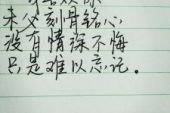 未必刻骨铭心
没有情深不悔
只是难以忘记。